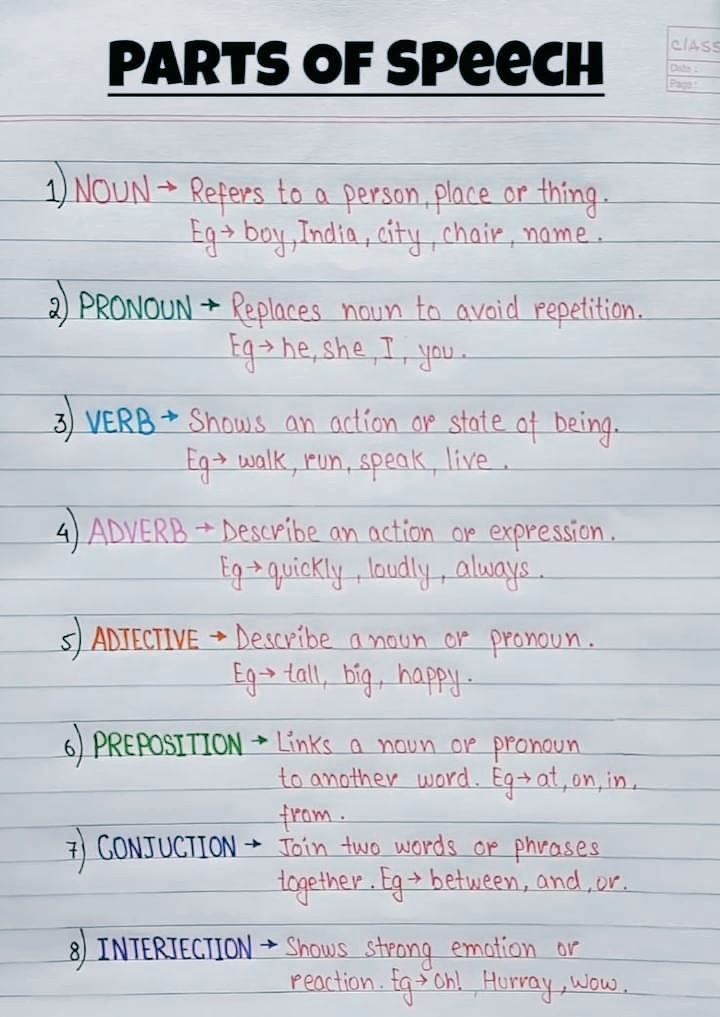 PARTS OF SPEECH
CLASS
Date :
Page :
1) NOUN → Refers to a person, place or thing.
Eg → boy, India, city, chair, name.
2) PRONOUN → Replaces noun to avoid repetition.
Eg → he, she, I, you.
3) VERB → Shows an action or state of being.
Eg → walk, run, speak, live.
4) ADVERB → Describe an action or expression.
Eg → quickly, loudly, always.
5) ADJECTIVE → Describe a noun or pronoun.
Eg → tall, big, happy.
6) PREPOSITION → Links a noun or pronoun
to another word. Eg → at, on, in,
from.
7) CONJUCTION → Join two words or phrases
together. Eg → between, and, or.
8) INTERJECTION → Shows strong emotion or
reaction. Eg → Oh!, Hurray, Wow.